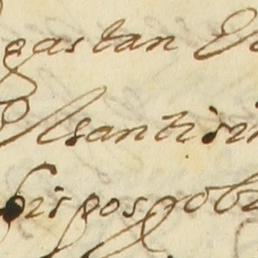 gastan
santisi
bispos gob